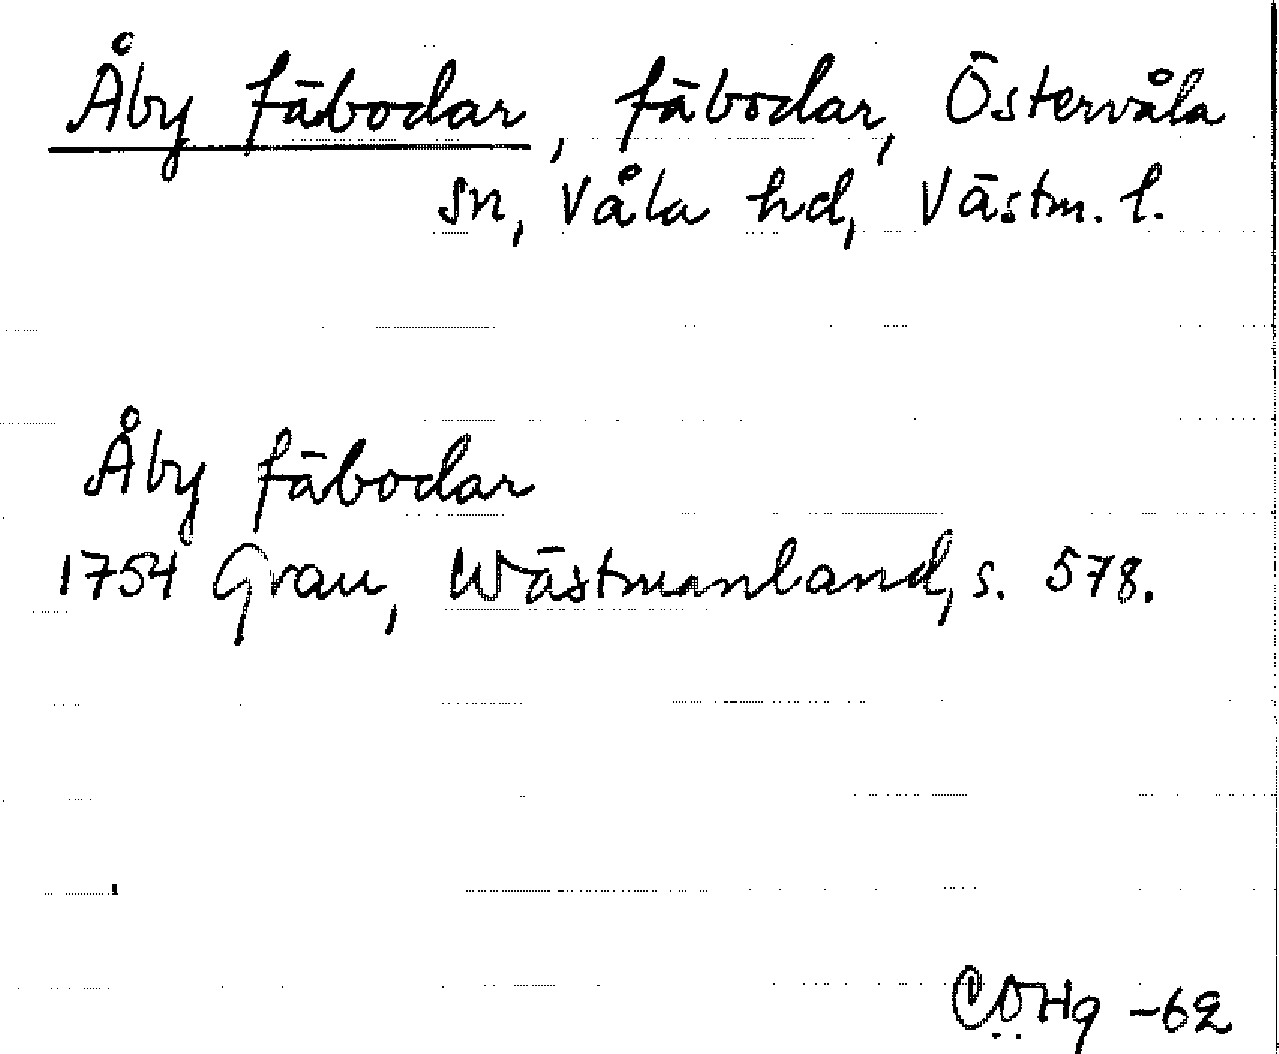 Åby fäbodar, fäbodar, Östervåla
sn, Våla hd, Västm. l.
Åby fäbodar
1754 Grau, Wästmanland, s. 578.
-62